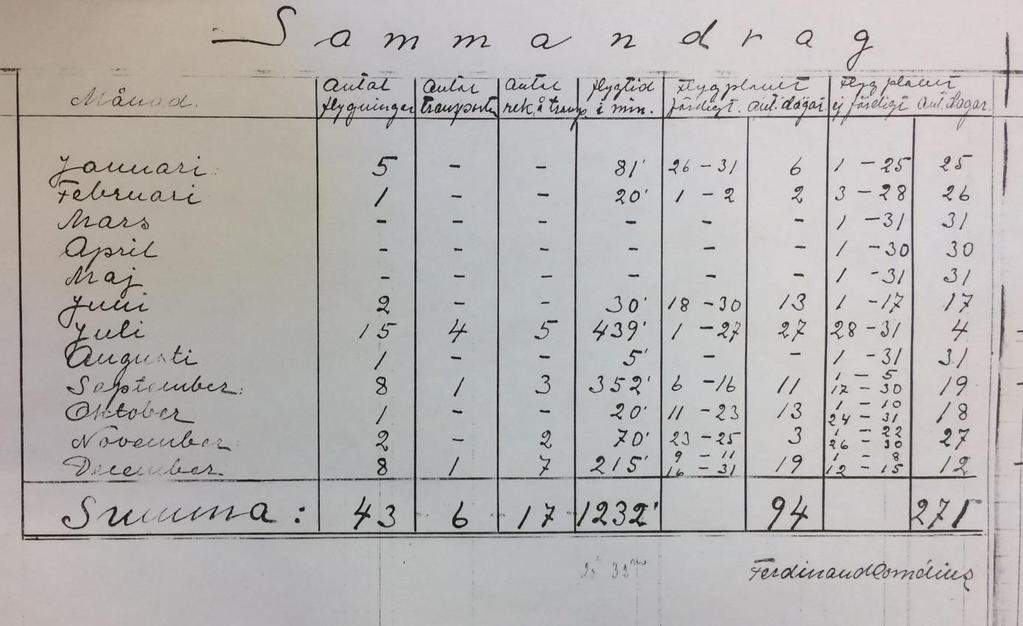 Sammandrag
Månad. Antal flygningar Antal transporter Antal rek. å transp. flygtid i min. Flygplanet färdigt. ant. dagar Flygplanet ej färdigt ant. dagar.
Januari: 5 - - 81' 26-31 6 1-25 25
Februari 1 - - 20' 1-2 2 3-28 26
Mars - - - - - - 1-31 31
April - - - - - - 1-30 30
Maj - - - - - - 1-31 31
Juni 2 - - 30' 18-30 13 1-17 17
Juli 15 4 5 439' 1-27 27 28-31 4
Augusti 1 - - 5' - - 1-31 31
September: 8 1 3 352' 6-16 11 1-5 17-30 19
Oktober 1 - - 20' 11-23 13 1-10 24-31 18
November: 2 - 2 70' 23-25 3 1-22 26-30 27
December 8 1 7 215' 9-11 16-31 19 1-8 12-15 12
Summa: 43 6 17 1232' 94 271
Ferdinand Cornélius